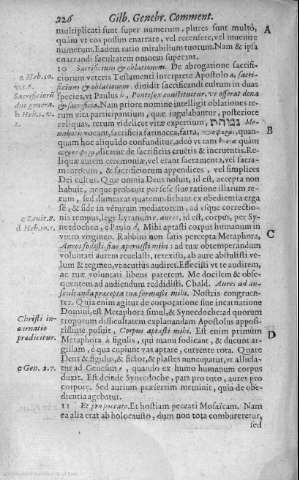 226 Gilb. Genebr. Comment.
multiplicati sunt super numerum, plures sunt multò,
quàm vt eos possim narrare, vel recensere, vel inuenire
numerum. Eadem ratio mirabilium tuorum. Nam & ipsa
enarrandi facultatem nouem superant.
10 Sacrificium & oblationem. De abrogatione sacrifi-
ciorum veteris Testamenti interprete Apostolo a, sacri-
ficium & oblationem diuidit sacrificandi cultum in duas
species, vt Paulus b, Pontifex constituitur, vt offerat dona
& sacrificia. Nam priore nomine intelligit oblationes re-
rum vita
reliquas, rerum videlicet vitæ expertium,
uocant, sacrificia farinacea, farta,
quam hoc aliquādo confundatur, adeo vt tam
dicatur de sacrificiis cruētis & incruentis. Re-
liquæ autem ceremoniæ, vel erant sacramenta, vel sacra-
mentorum, & sacrificiorum appendices, vel simplices
Dei cultus. Quæ omnia Deus noluit, id est, accepta non
habuit, neque probauit per sese siue ratione illarum re-
rum, sed dumtaxat quatenus fiebant ex obedientia erga
se, & fide in vēturum mediatorem, ad vsque correctio-
nis tempus, lege Lyranum. aures, id est, corpus, per Sy-
nedochen, c Paulo d. Mihi aptasti corpus humanum in
vtero virginis. Rabbini non satis percepta Metaphora,
Aures fodisti, siue aperuisti mihi: ad tuæ obtemperandum
voluntati aurem reuelasti, retexisti, ab aure abstulisti ve-
lum & tegmen, vt acutius audirē. Effecisti vt te audirem,
ac tuæ voluntati libens parerem. Me docilem & obse-
quentem ad audiendum reddidisti. Chald. Aures ad au-
scultanda præcepta tua formasti mihi. Nostris congruen-
ter. Quia enim agitur de conjugatione siue incarnatione
Domini, est Metaphora simul, & Synecdoche: ad quorum
troporum difficultatem explanandam Apostolus appo-
sitissimè posuit, Corpus aptasti mihi. Est enim primùm
Metaphora à figulis, qui manu fodicant, & ducunt ar-
gillam, è qua cupiunt vas aptare, currente rota. Quare
Deus & figulus, & fictor, & plastes nuncupatur, vt allusū
tur ad Genesim e, quando ex humo humanum corpus
duxit. Est deinde Synecdoche, pars pro toto, aures pro
corpore. Sed aurium præsertim meminit, quia de obe-
dientia agebatur.
11 Et pro peccato. Et hostiam peccati Mosaïcam. Nam
ea alia erat ab holocausto, dum non tota combureretur,
sed
A
B
C
D
a Heb. 10.
Sacrificiorū
duo genera.
b Heb. 5. v.
1.
c Leuit. 8.
d Heb. 10. 5.
Christi in-
carnatio
prædicitur.
e Gen. 2. 7.